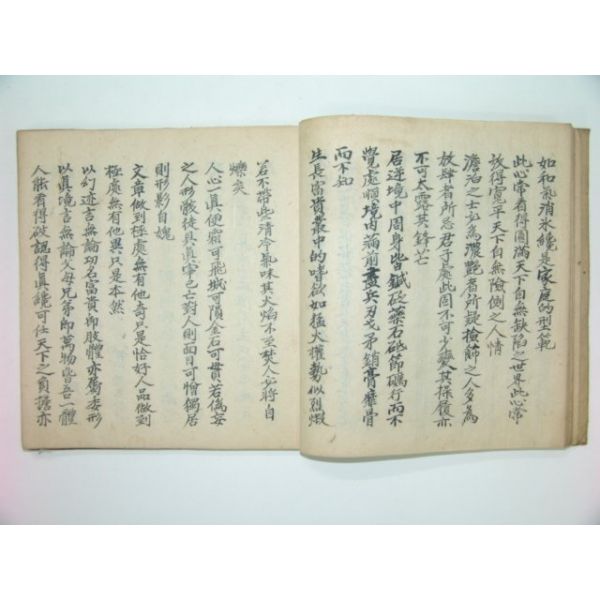 如和氣消氷纔是家庭的型範
此心常看得圓滿天下自無缺陷之世界此心常
放得寬平天下自無險側之人情
澹泊之士必為濃艶者所疑檢飾之人多為
放肆者所忌君子處此固不可少變其操履亦
不可太露其鋒芒
居逆境中周身皆鍼砭藥石砥節礪行而不
覺處順境內滿前盡兵刃戈矛銷膏靡骨
而不知
生長富貴叢中的嗜欲如猛火權勢似烈焰
若不帶些清冷氣味其火焰不至焚人必將自
爍矣
人心一真便霜可飛城可隕金石可貫若偽妄
之人形骸徒具真宰已亡對人則面目可憎獨居
則形影自媿
文章做到極處無有他奇只是恰好人品做到
極處無有他異只是本然
以幻迹言無論功名富貴卽肢體亦屬委形
以真境言無論父母兄弟卽萬物皆吾一體
人能看得破認得真纔可任天下之負擔亦